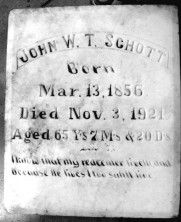 JOHN W. T. SCHOTT
Born
Mar. 13, 1856
Died Nov. 3, 1921
Aged 65 Ys 7 Ms & 20 Ds
I know that my redeemer liveth and
Because he lives I too shall live